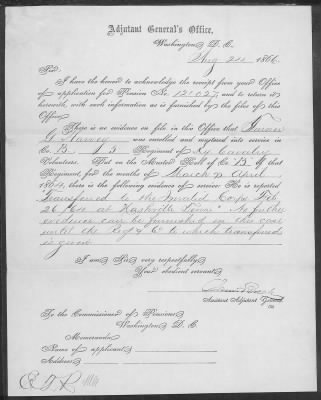 Adjutant General's Office,
Washington, D. C.
Aug 24, 1866.
Sir:
I have the honor to acknowledge the receipt from your Office
of application for Pension No. 121027, and to return it
herewith, with such information as is furnished by the files of this
Office.
There is no evidence on file in this Office that
G. was enrolled and mustered into service in
Co. B, 5 Regiment of Ky Cavalry
Volunteers. But on the Muster Roll of Co. B of that
Regiment, for the months of March & April,
1864, there is the following evidence of service: He is reported
Transferred to the Invalid Corps Feb
26 1864 at Nashville Tenn. No further
evidence can be furnished in this case
until the Regt & Co to which transferred
is given
I am, Sir, very respectfully,
Your obedient servant,
Assistant Adjutant General
To the Commissioner of Pensions,
Washington, D. C.
Memoranda:
Name of applicant
Address